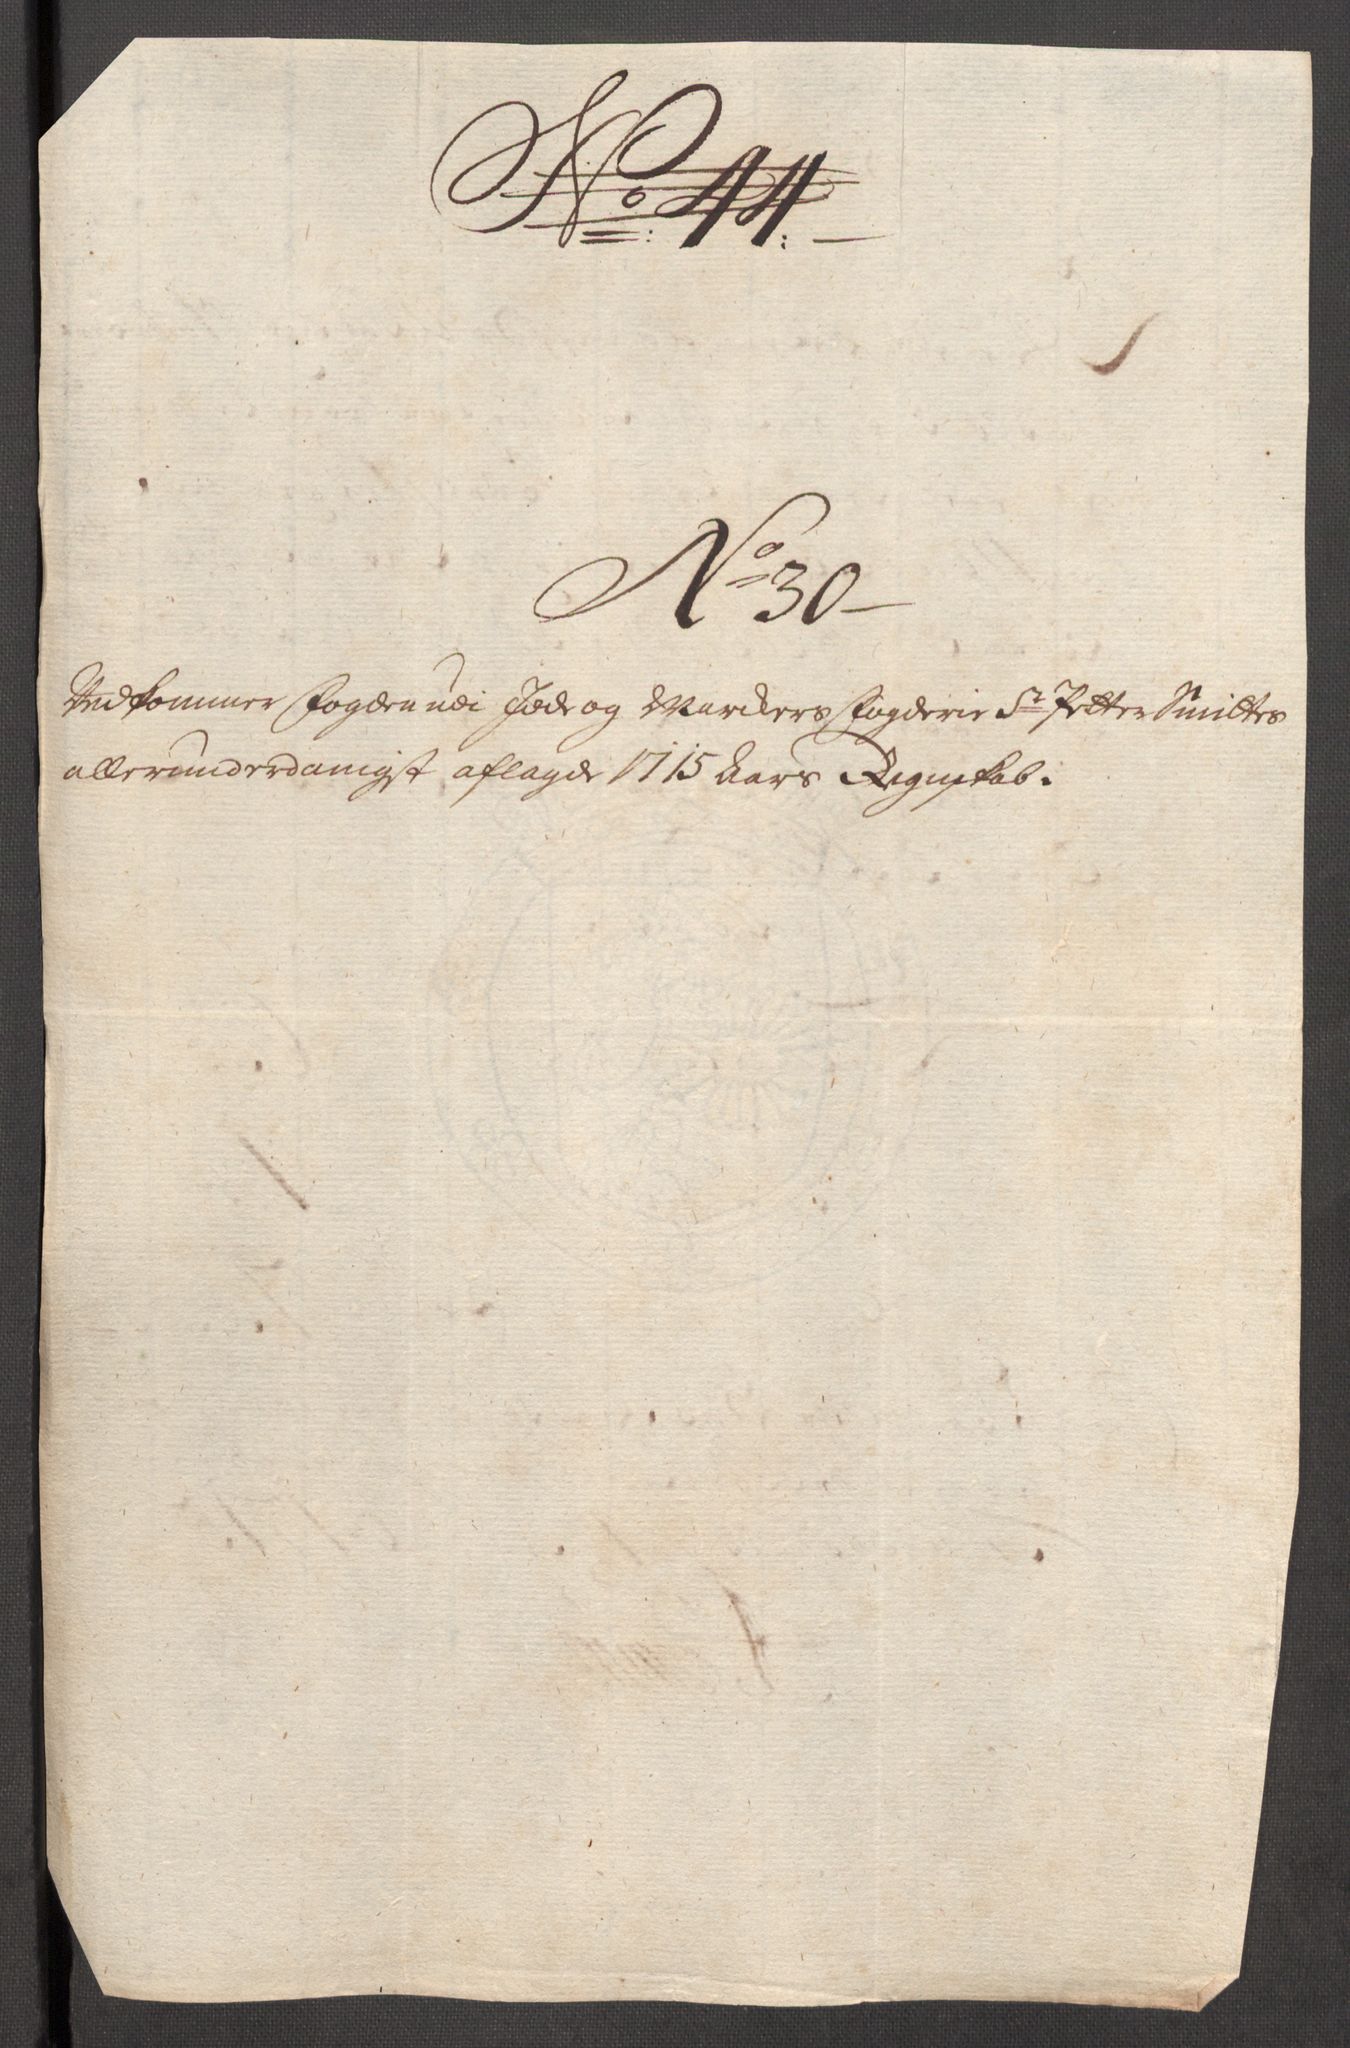 No: 44: —
No 30 —
Vedkommer Fogden udi Idde og Markers Fogderie Sr Petter Smittes
allerunderdanigst aflagde 1715 Aars Regnskab.